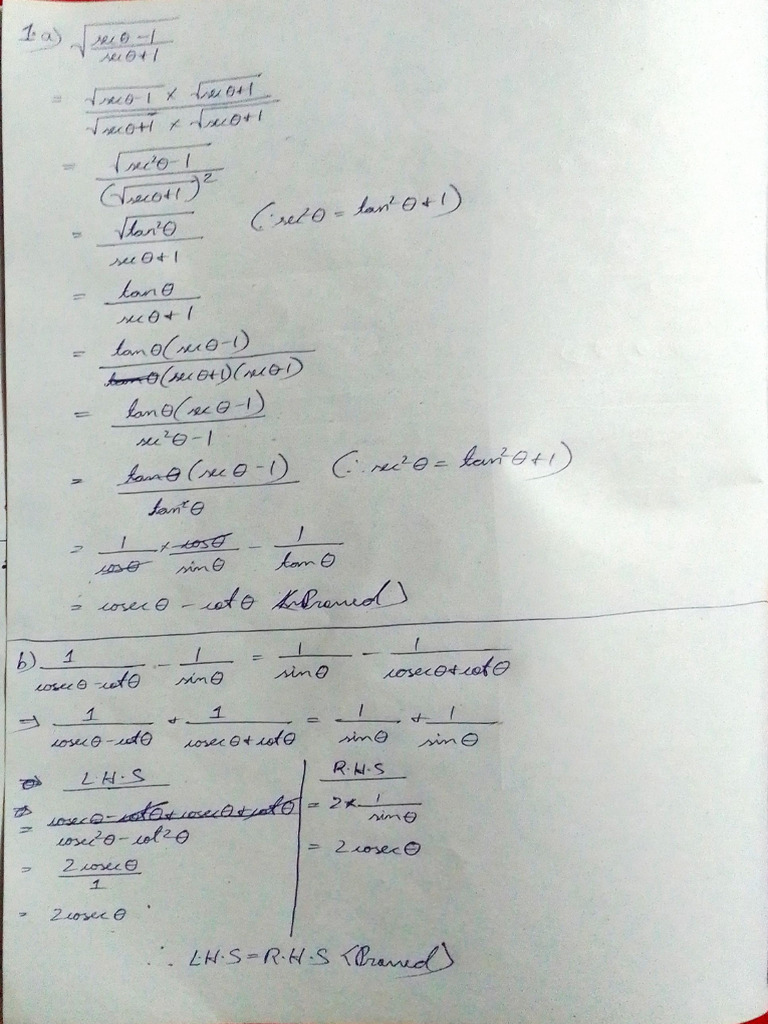 1.a) √((secθ-1)/(secθ+1))
= (√(secθ-1) × √(secθ+1))/(√(secθ+1) × √(secθ+1))
= √(sec²θ-1)/(√(secθ+1))²
= √(tan²θ)/(secθ+1) (∵ sec²θ = tan²θ+1)
= tanθ/(secθ+1)
= tanθ(secθ-1)/(secθ+1)(secθ-1)
= tanθ(secθ-1)/(sec²θ-1)
= tanθ(secθ-1)/tan²θ (∵ sec²θ = tan²θ+1)
= 1/cosθ × cosθ/sinθ - 1/tanθ
= cosecθ - cotθ (Proved)
b) 1/(cosecθ-cotθ) - 1/sinθ = 1/sinθ - 1/(cosecθ+cotθ)
⇒ 1/(cosecθ-cotθ) + 1/(cosecθ+cotθ) = 1/sinθ + 1/sinθ
L.H.S
= (cosecθ-cotθ+cosecθ+cotθ)/(cosec²θ-cot²θ)
= 2cosecθ/1
= 2cosecθ
R.H.S
= 2×1/sinθ
= 2cosecθ
∴ L.H.S = R.H.S (Proved)